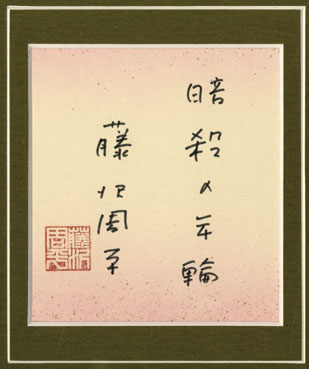 暗殺の年輪
藤沢周平
藤沢
周平